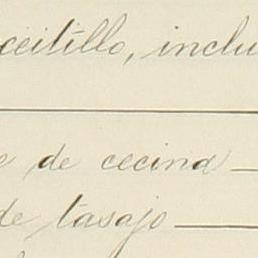 ceitillo, inclu
e de cecina
de tasajo